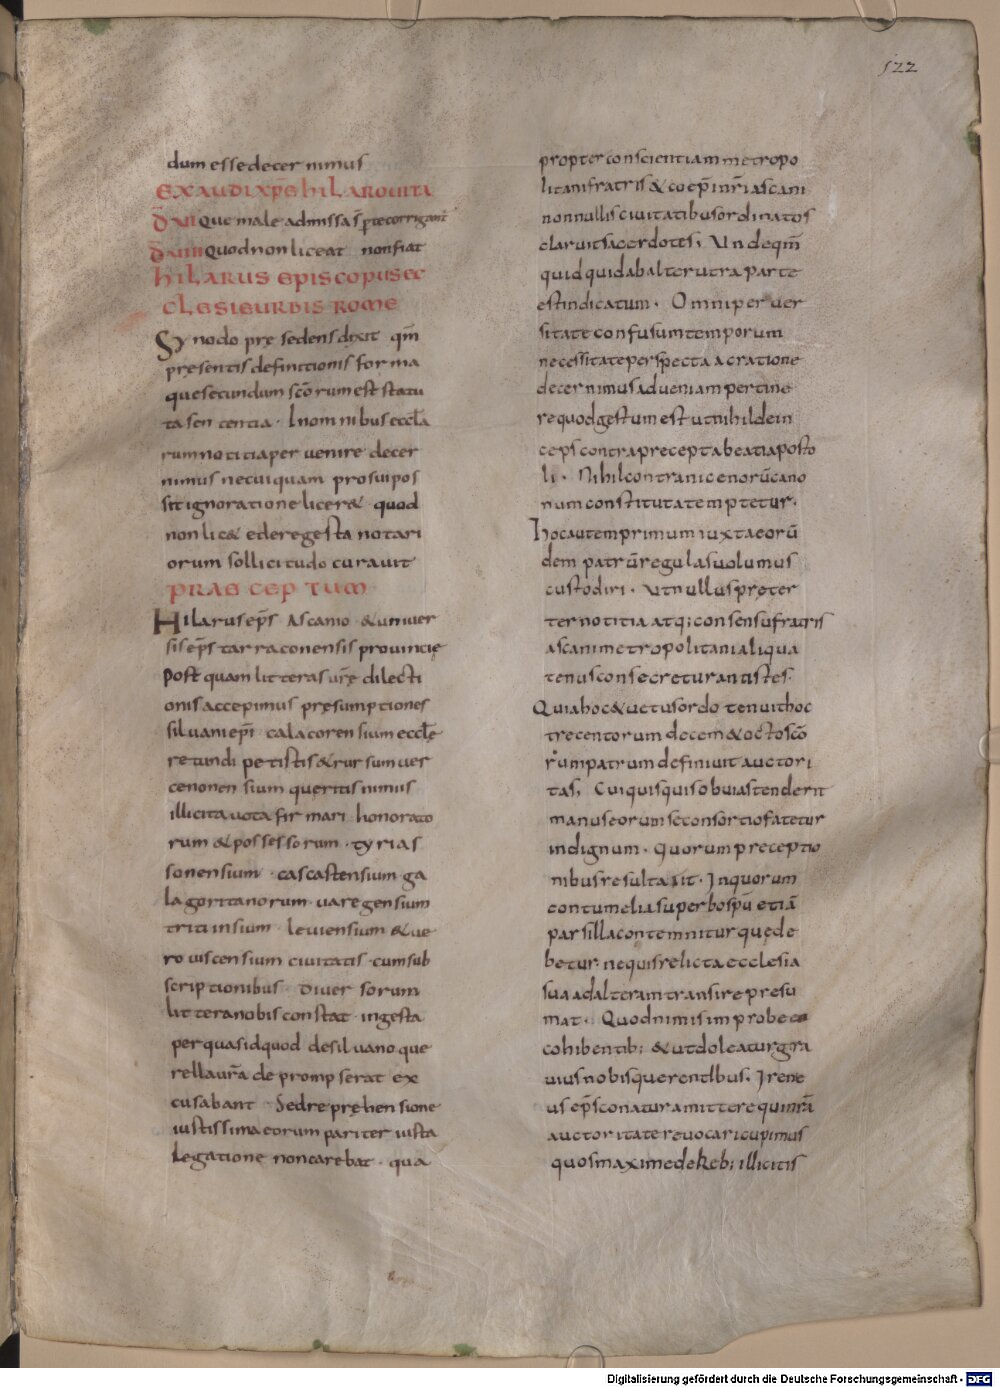 522
dum esse decernimus
EXAUDI XPE HILARO VITA
D̄ XII Que male admissa s̄ p̄te corrigant̄
D̄ XIIII Quod non liceat non fiat
HILARUS EPISCOPUS EC
CLESIE URBIS ROME
Synodo prę sedens dixit qm̄
presentis definitionis forma
que secundum scōrum est statu
ta sententia · In omnibus eccl̄a
rum notitia pervenire decer
nimus ne cuiquam pro sui pos
sit ignoratione licer& quod
non lic& edere gesta notari
orum sollicitudo curavit
PRAECEPTUM
Hilarus ep̄s Ascanio & univer
sis ep̄s tarraconensis provincię
Postquam litteras ūrę dilecti
onis accepimus presumptiones
silvani ep̄i calacorensium eccl̄e
retundi petistis & rursum ver
cenonensium queritis nimus
illicita vota firmari · honorato
rum & possessorum · tyrias
sonensium · cascastensium ga
lagoritanorum varegensium
tritiinsium leviensium & ve
roviscensium civitatis · cum sub
scriptionibus · diversorum
littera nobis constat ingesta
per quas idquod de silvano que
rella ūr̄a depromp serat ex
cusabant Sed reprehensione
iustissima eorum pariter iusta
legatione non carebat · qua
propter conscientiam metropo
litani fratris & coep̄i nr̄i ascani
nonnullis civitatibus ordinatos
claruit sacerdotes; Unde qm̄
quidquid ab alterutra parte
est indicatum · Omni perver
sitate confusum temporum
necessitate perspecta ac ratione
decernimus ad veniam pertine
re quod gestum est ut nihil dein
ceps contra precepta beati aposto
li · Nihil contra nicenorū cano
num constituta temptetur·
hoc autem primum iuxta eorū
dem patrū regulas volumus
custodiri · Ut nullus preter
ter notitia atq; consensu fratris
ascani metropolitani aliqua
tenus consecretur antistes·
Quia hoc & vetus ordo tenuit hoc
trecentorum decem & octo scō
rum patrum definivit auctori
tas; Cui quisquis obvias tenderit
manus eorum se consortio fatetur
indignum · Quorum preceptio
nibus resultavit · In quorum
contumelia superbos p̄u etiā
pars illa contemnitur que de
betur ne quis relicta ecclesia
sua ad alteram transire presu
mat · Quod nimis improbe
cohibentib; & ut doleatur gra
vius nobis querentibus · Irene
us ep̄s conatur amittere quin r̄a
auctoritate revocari cupimus
quos maxime de Reb; illicitis
Digitalisierung gefördert durch die Deutsche Forschungsgemeinschaft - DFG